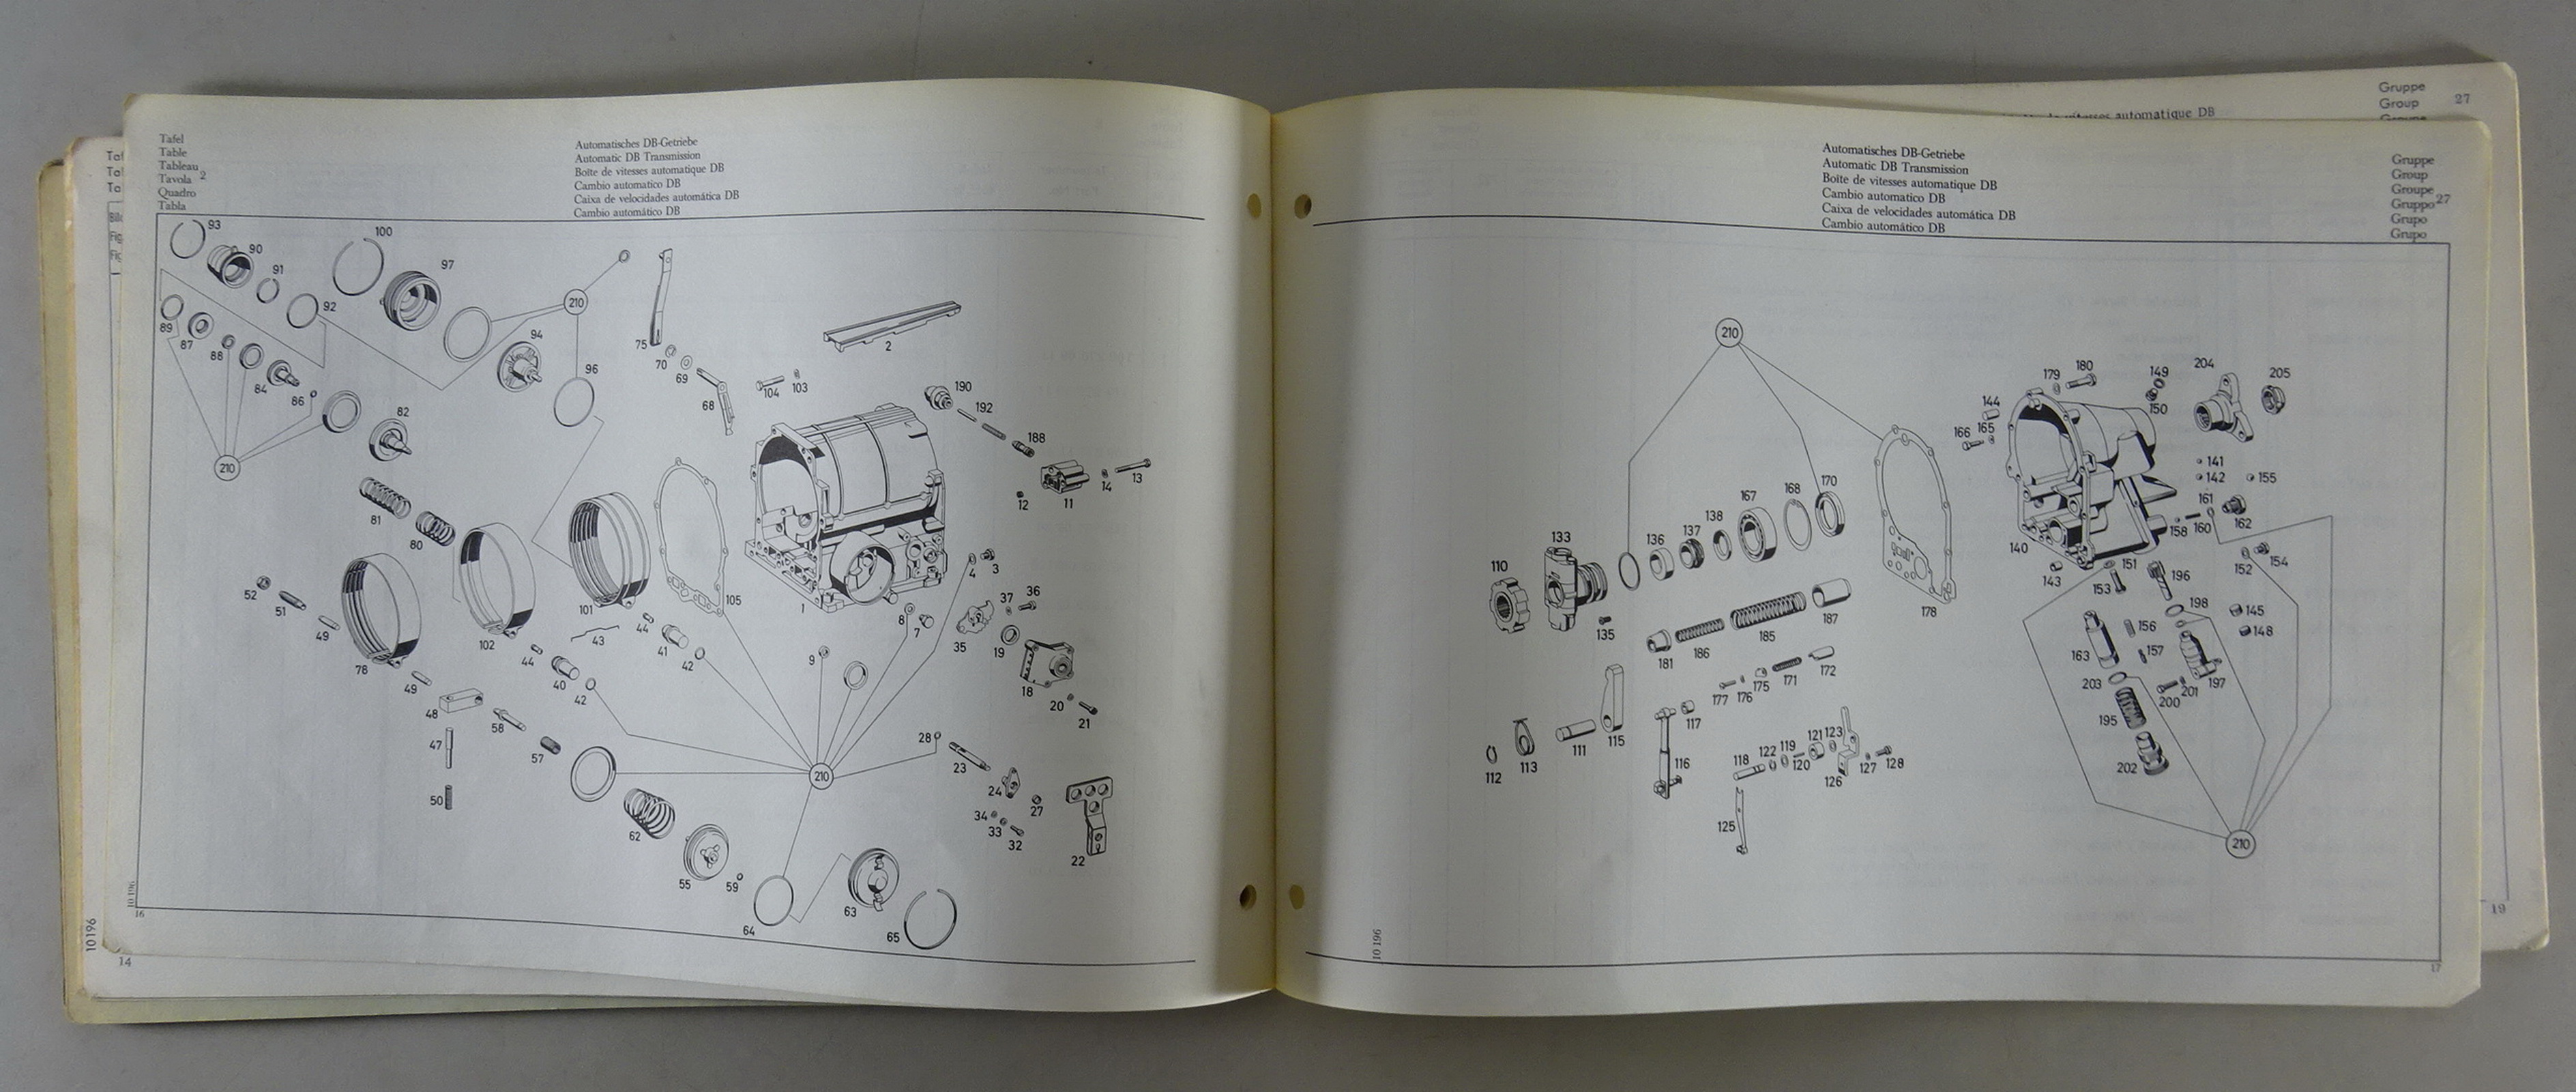 Tafel
Table
Tableau
Tavola 2
Quadro
Tabla
Automatisches DB-Getriebe
Automatic DB Transmission
Boîte de vitesses automatique DB
Cambio automatico DB
Caixa de velocidades automática DB
Cambio automático DB
93
90
91
100
97
92
210
89
87
88
84
86
94
96
82
210
81
80
75
70
69
68
104
103
2
190
192
188
11
12
14
13
52
51
49
78
102
101
105
1
44
43
41
42
44
40
42
49
48
47
50
58
57
62
55
59
64
63
65
9
8
7
4
3
37
36
35
19
18
20
21
28
23
24
27
34
33
32
22
210
10 196
16
14
10196
Automatisches DB-Getriebe
Automatic DB Transmission
Boîte de vitesses automatique DB
Cambio automatico DB
Caixa de velocidades automática DB
Cambio automático DB
Gruppe
Group
27
vitesses automatique DB
Gruppe
Group
Groupe
Gruppo 27
Grupo
Grupo
210
179
180
149
150
204
205
144
165
166
141
142
155
161
162
158
160
140
143
151
153
152
154
196
198
145
148
156
157
163
197
203
200
201
195
202
210
110
133
135
136
137
138
167
168
170
178
181
186
185
187
177
176
175
171
172
112
113
111
115
117
116
118
122
119
120
121
123
126
127
128
125
10 196
17
19